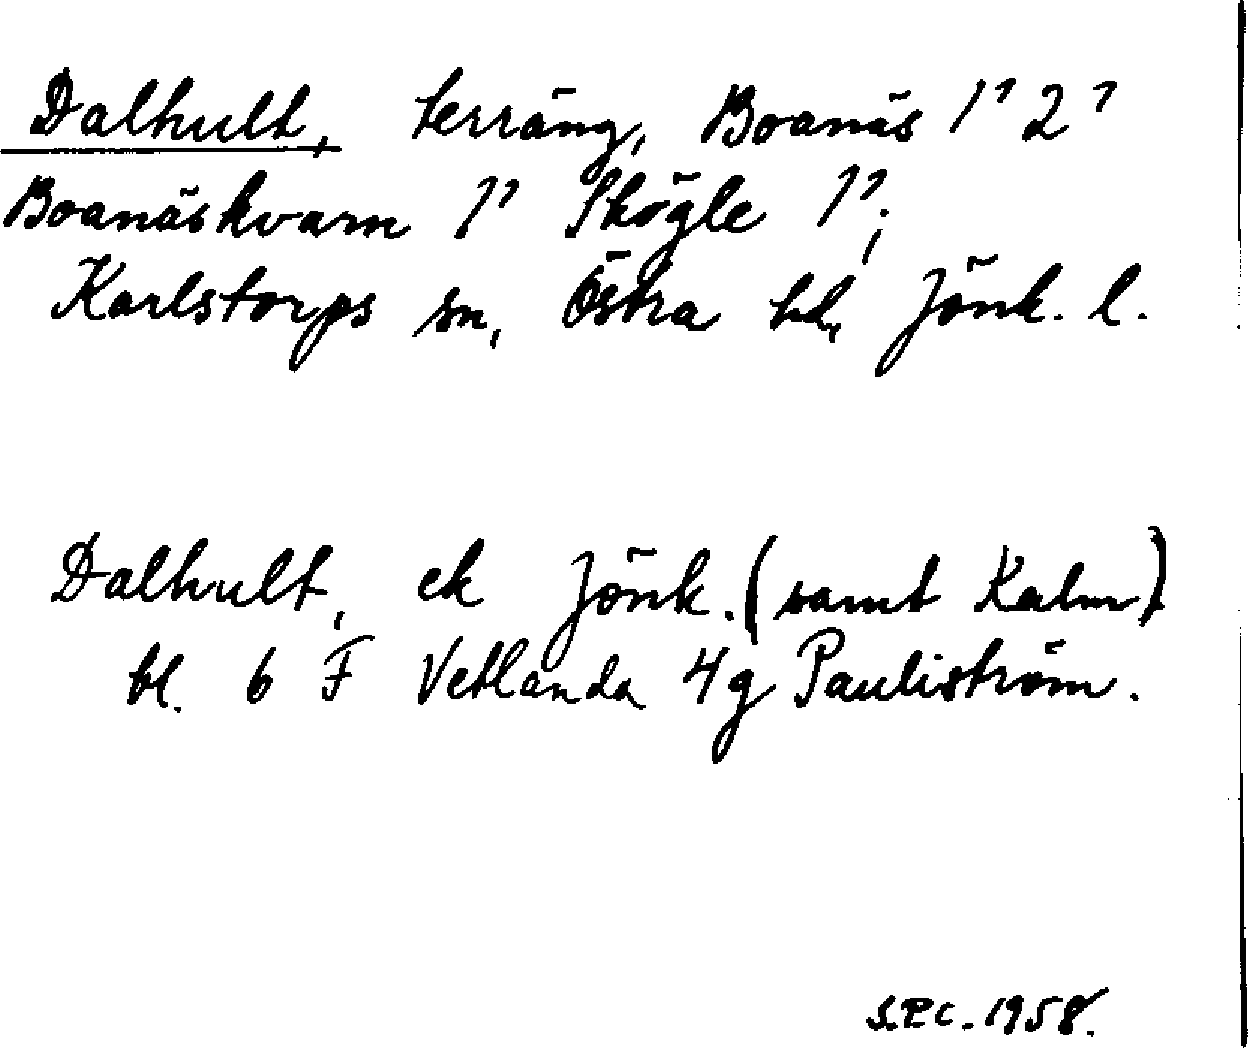 Dalhult, terräng, Boanäs 1² 2²
Boanäskvarn 1² Skögle 1²;
Karlstorps sn, Östra hd, Jönk. l.
Dalhult, ek Jönk. (samt Kalm)
bl. 6 F Vetlanda 4g Pauliström.
S.P.C. 1958.